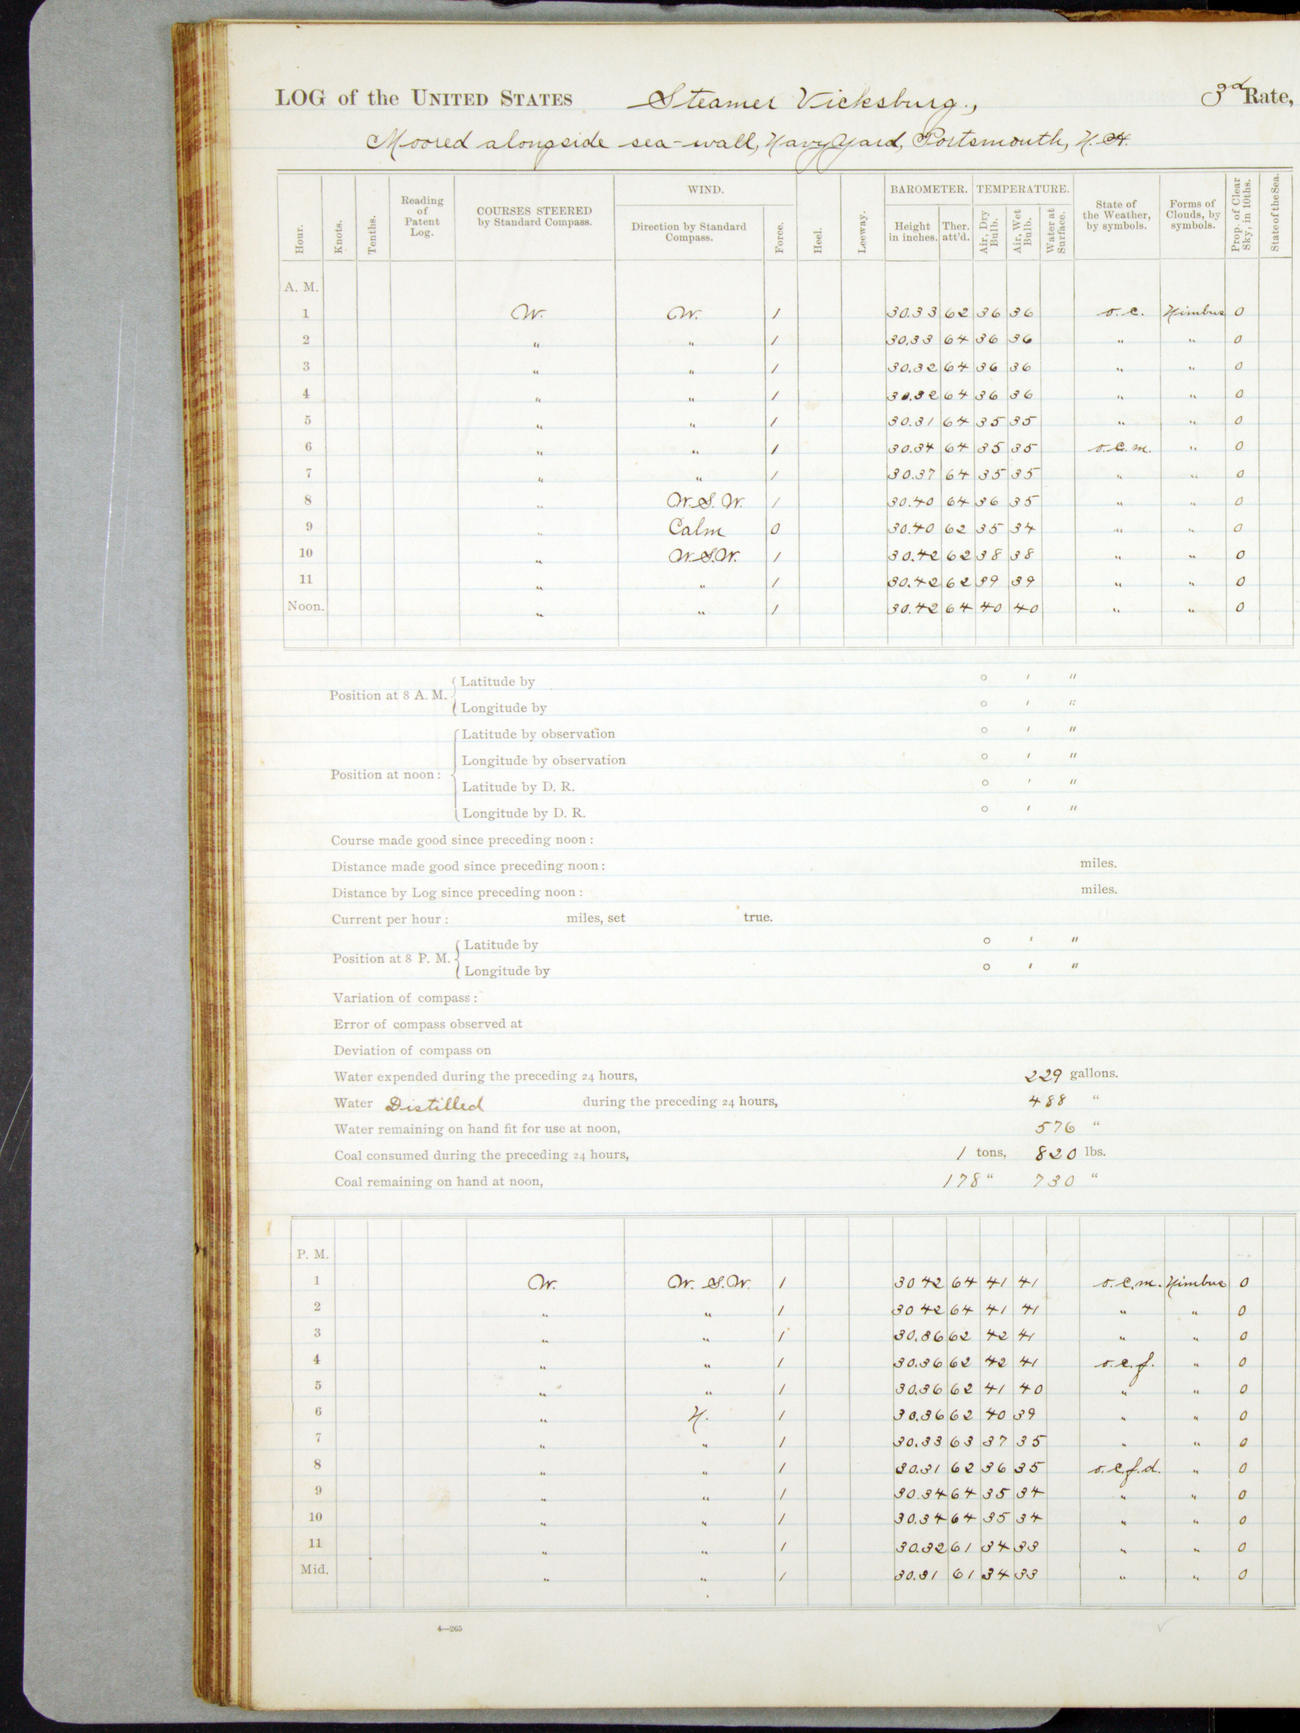 LOG of the UNITED STATES Steamer Vicksburg, 3rd Rate,
Moored alongside sea-wall, Navy Yard, Portsmouth, N.H.
Hour. Knots. Tenths. Reading of Patent Log. COURSES STEERED by Standard Compass. WIND. Direction by Standard Compass. Force. Heel. Leeway. BAROMETER. Height in inches. Ther. att'd. TEMPERATURE. Air, Dry Bulb. Air, Wet Bulb. Water at Surface. State of the Weather, by symbols. Forms of Clouds, by symbols. Prop. of Clear Sky, in 10ths. State of the Sea.
A. M.
1 W. W. 1 30.33 62 36 36 o.c. Nimbus 0
2 " " 1 30.33 64 36 36 " " 0
3 " " 1 30.32 64 36 36 " " 0
4 " " 1 30.32 64 36 36 " " 0
5 " " 1 30.31 64 35 35 " " 0
6 " " 1 30.34 64 35 35 o.c.m. " 0
7 " " 1 30.37 64 35 35 " " 0
8 " W.S.W. 1 30.40 64 36 35 " " 0
9 " Calm 0 30.40 62 35 34 " " 0
10 " W.S.W. 1 30.42 62 38 38 " " 0
11 " " 1 30.42 62 39 39 " " 0
Noon. " " 1 30.42 64 40 40 " " 0
Position at 8 A. M. Latitude by ° ' "
Longitude by ° ' "
Position at noon: Latitude by observation ° ' "
Longitude by observation ° ' "
Latitude by D. R. ° ' "
Longitude by D. R. ° ' "
Course made good since preceding noon:
Distance made good since preceding noon: miles.
Distance by Log since preceding noon: miles.
Current per hour: miles, set true.
Position at 8 P. M. Latitude by ° ' "
Longitude by ° ' "
Variation of compass:
Error of compass observed at
Deviation of compass on
Water expended during the preceding 24 hours, 229 gallons.
Water Distilled during the preceding 24 hours, 488 "
Water remaining on hand fit for use at noon, 576 "
Coal consumed during the preceding 24 hours, 1 tons, 820 lbs.
Coal remaining on hand at noon, 178 " 730 "
P. M.
1 W. W.S.W. 1 30 42 64 41 41 o.c.m. Nimbus 0
2 " " 1 30 42 64 41 41 " " 0
3 " " 1 30.36 62 42 41 " " 0
4 " " 1 30.36 62 42 41 o.c.f. " 0
5 " " 1 30.36 62 41 40 " " 0
6 " N. 1 30.36 62 40 39 " " 0
7 " " 1 30.33 63 37 35 " " 0
8 " " 1 30.31 62 36 35 o.c.f.d. " 0
9 " " 1 30.34 64 35 34 " " 0
10 " " 1 30.34 64 35 34 " " 0
11 " " 1 30.32 61 34 33 " " 0
Mid. " " 1 30.31 61 34 33 " " 0
4—265